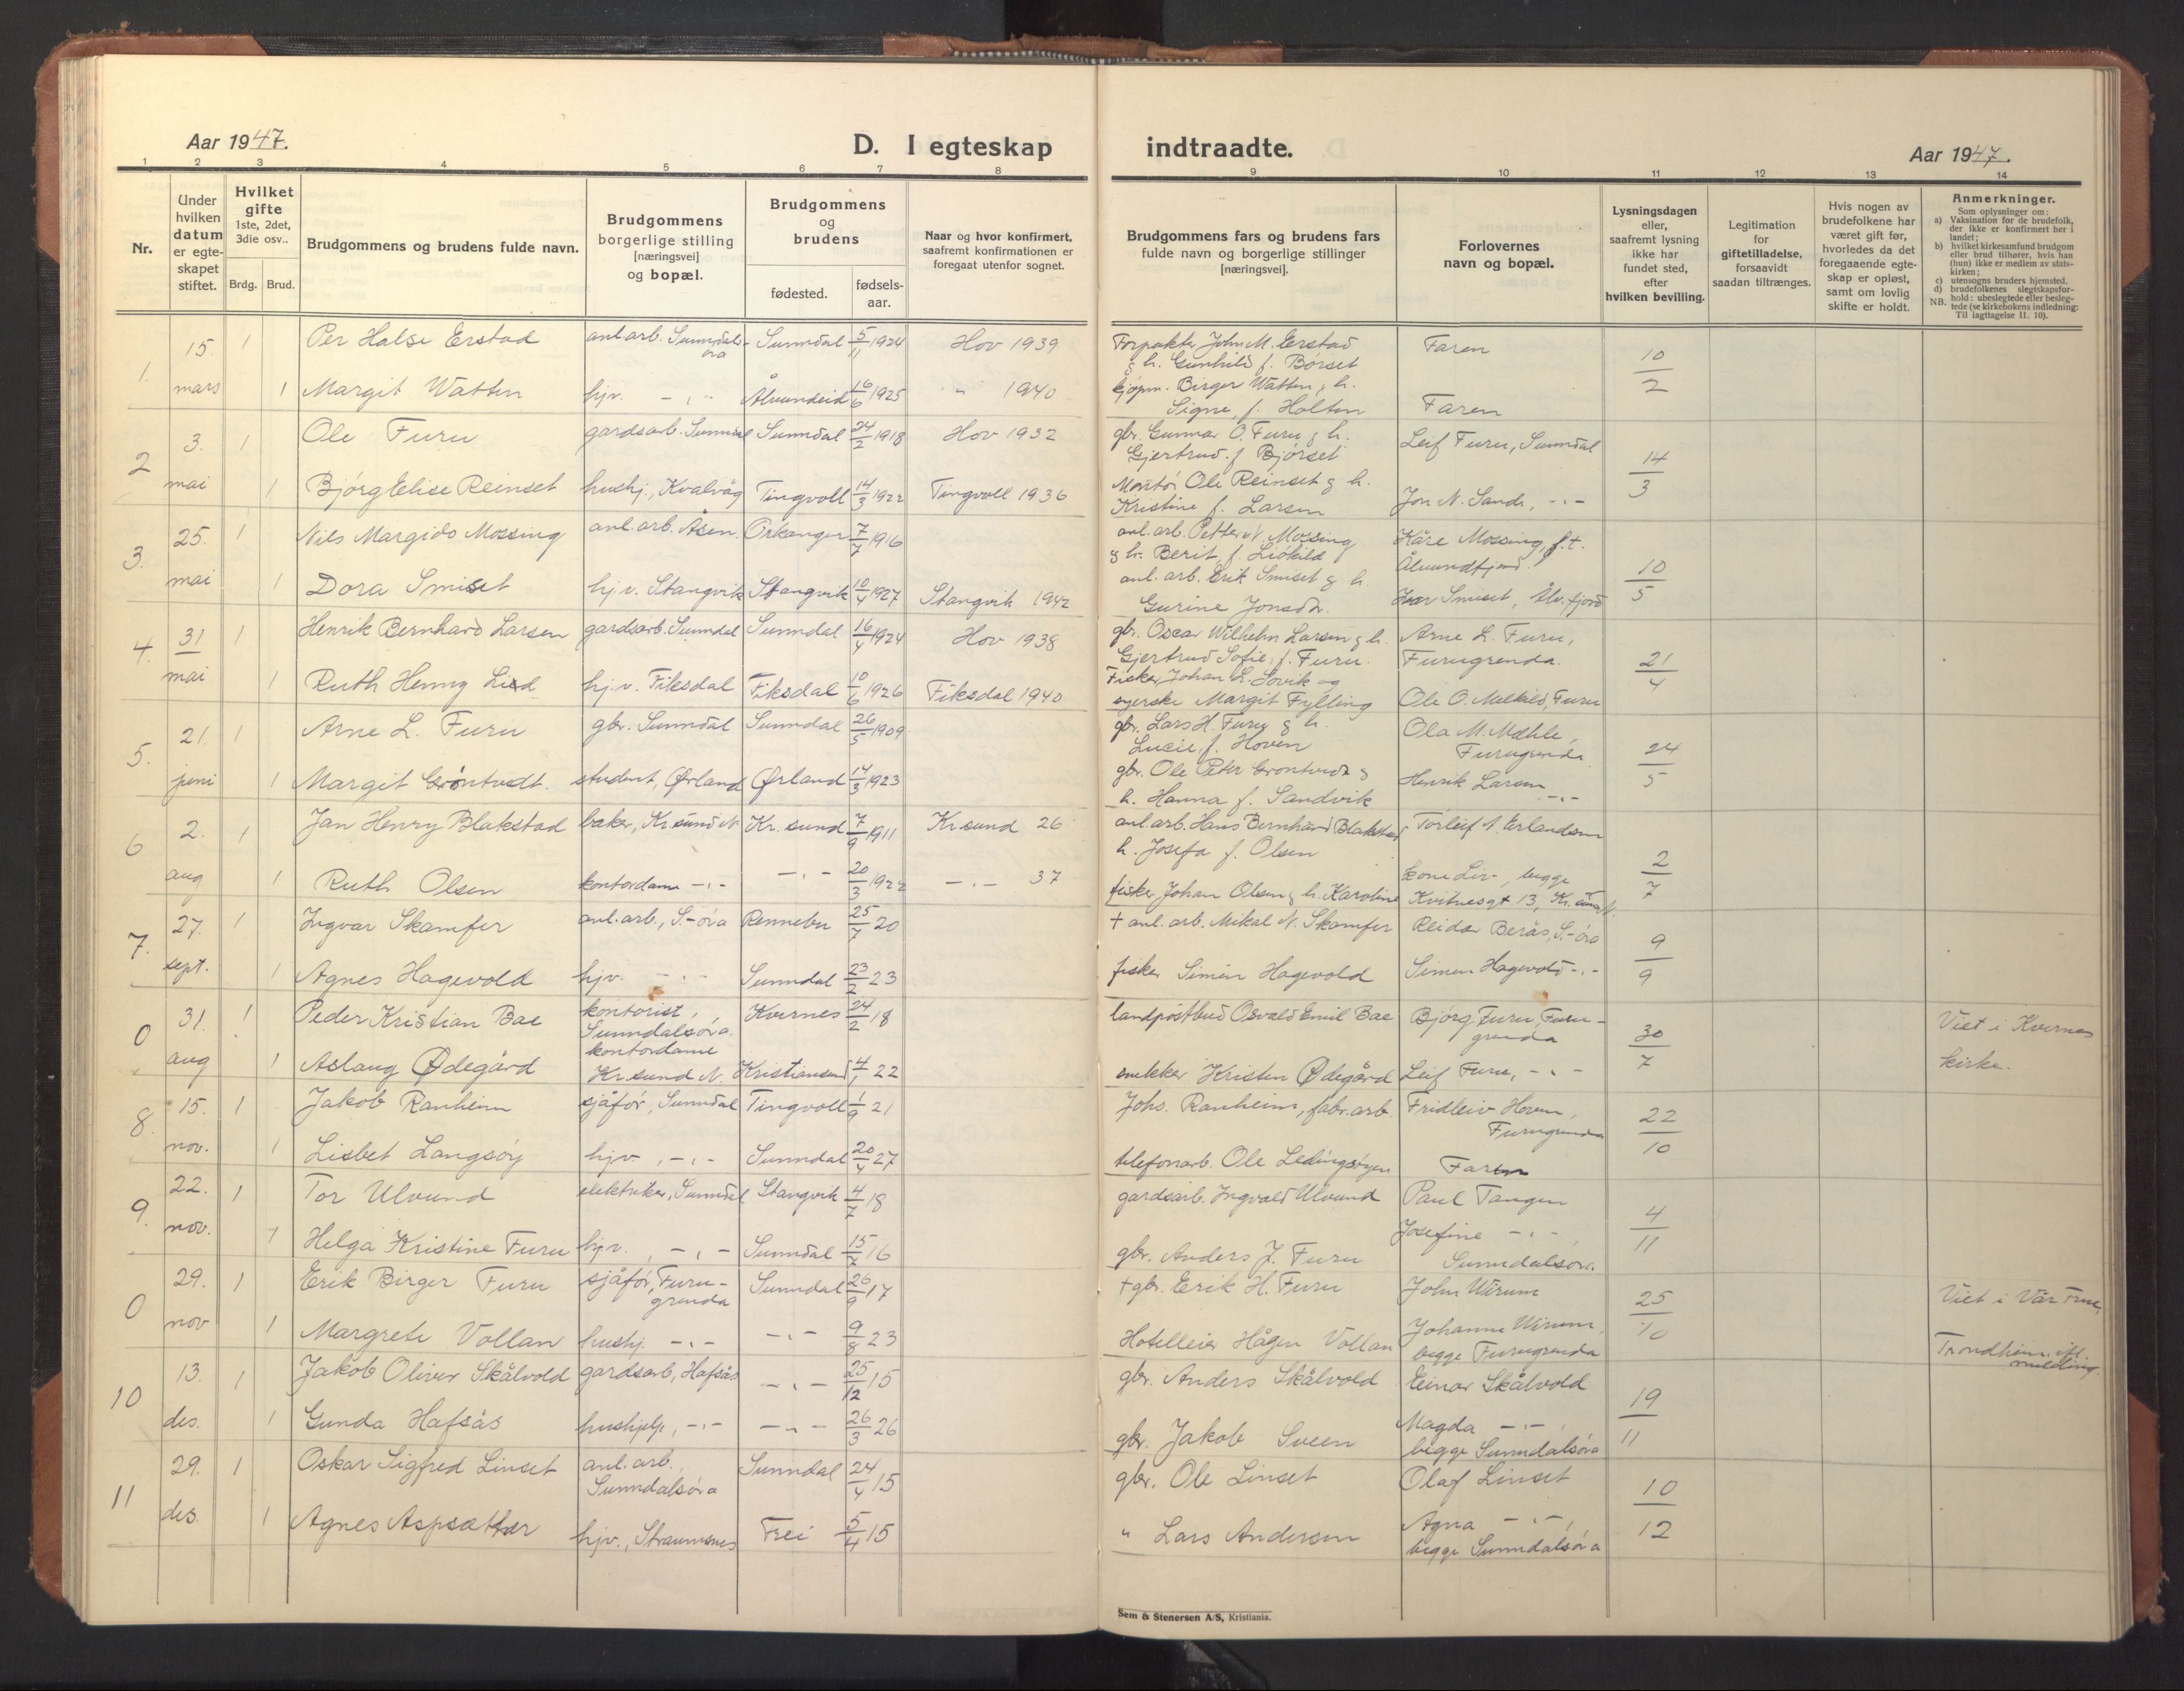 Aar 1947.
D. I egteskap indtraadte.
Aar 1947.
1 2 3 4 5 6 7 8 9 10 11 12 13 14
Nr.
Under hvilken datum er egte-skapet stiftet.
Hvilket gifte
1ste, 2det, 3die osv..
Brdg. Brud.
Brudgommens og brudens fulde navn.
Brudgommens borgerlige stilling [næringsvei] og bopæl.
Brudgommens og brudens
fødested. fødsels-aar.
Naar og hvor konfirmert, saafremt konfirmationen er foregaat utenfor sognet.
Brudgommens fars og brudens fars fulde navn og borgerlige stillinger [næringsvei].
Forlovernes navn og bopæl.
Lysningsdagen eller, saafremt lysning ikke har fundet sted, efter hvilken bevilling.
Legitimation for giftetilladelse, forsaavidt saadan tiltrænges.
Hvis nogen av brudefolkene har været gift før, hvorledes da det foregaaende egte-skap er opløst, samt om lovlig skifte er holdt.
Anmerkninger.
Som oplysninger om:
a) Vaksination for de brudefolk, der ikke er konfirmert her i landet;
b) hvilket kirkesamfund brudgom eller brud tilhører, hvis han (hun) ikke er medlem av stats-kirken;
c) utensogns bruders hjemsted.
d) brudefolkenes slegtskapsfor-hold: ubeslegtede eller besleg-tede (se kirkebokens indledning:
NB. Til iagttagelse II. 10).
1. 15. mars
1 Per Halse Erstad anl.arb. Sunndals-øra Sunndal 5/11 1924 Hov 1939
Forpakter John M. Erstad
g h. Gunhild f. Børset
Faren
10/2
1 Margit Watten hjv. -,- Ålvundeid 16/6 1925 " 1940
kjøpm. Birger Watten g h.
Signe, f. Holten
Faren
2 3. mai
1 Ole Furu gardsarb. Sunndal Sunndal 24/2 1918 Hov 1932
gbr. Gunnar O. Furu g h.
Gjertrud f. Bjørset
Leif Furu, Sunndal
14/3
1 Bjørg Elise Reinset hushj., Kvalvåg Tingvoll 14/3 1922 Tingvoll 1936
Montør Ole Reinset g h.
Kristine f. Larsen
Jon N. Sande, -,-
3. 25. mai
1 Nils Margido Mossing anl.arb. Åsen. Orkanger 7/7 1916
anl.arb. Petter N. Mossing
g h. Berit, f. Liökild
Kåre Mossing, f.t.
Ålvundfjord.
10/5
1 Dora Smiset hj.v. Stangvik Stangvik 10/4 1927 Stangvik 1942
anl. arb. Erik Smiset g h.
Gurine Jonsdr.
Ivar Smiset, Ålv.fjord
4. 31 mai
1 Henrik Bernhard Larsen gardsarb. Sunndal Sunndal 16/4 1924 Hov 1938
gbr. Oscar Wilhelm Larsen g h.
Gjertrud Sofie, f. Furu.
Arne L. Furu,
Furugrenda.
21/4
1 Ruth Henny Lied hj.v. Fiksdal Fiksdal 10/6 1926 Fiksdal 1940
Fisker Johan L. Sovik og
syerske Margit Fylling
Ole O. Melkild, Furu
5. 21. juni
1 Arne L. Furu gbr. Sunndal Sunndal 26/5 1909
gbr. Lars H. Furu g h.
Lucie, f. Hoven
Ola M. Mæhle,
Furugrenda
24/5
1 Margit Grøntvedt. student, Ørland Ørland 14/3 1923
gbr. Ole Peter Grøntvedt g
h. Hanna f. Sandvik
Henrik Larsen -,-
6 2. aug
1 Jan Henry Blakstad baker, Kr.sund N. Kr. sund 7/9 1911 Kr.sund 26
anl.arb. Hans Bernhard Blakstad
h. Josefa f. Olsen
Torleif N. Erlandsen
2/7
1 Ruth Olsen kontordame -,- -,- 20/3 1922 -,- 37
fisker Johan Olsen g h. Karoline
kone Liv -, begge
Kvitnesgt. 13, Kr.sund N.
7. 27. sept.
1 Ingvar Skamfer anl.arb., S.-øra Rennebu 25/7 20
+ anl. arb. Mikal N. Skamfer
Reidar Berås, S.-øra
9/9
1 Agnes Hagevold hjv. -,- Sunndal 23/2 23
fisker Simen Hagevold
Simen Hagevold -,-
0 31. aug
1 Peder Kristian Bae kontorist, Sunndalsøra. Kvernes 24/2 18
landpostbud Osvald Emil Bae
Bjørg Furu, Furu-grenda
30/7
Viet i Kvernes
kirke.
1 Aslaug Ødegård kontordame Kr.sund N. Kristiansund 4/1 22
snekker Kristen Ødegård
Leif Furu, -,-
8. 15. nov.
1 Jakob Ranheim sjåfør, Sunndal Tingvoll 1/9 21
Johs. Ranheim, fabr.arb.
Fridleiv Hoven,
Furugrenda
22/10
1 Lisbet Langsøy hjv. ,-,- Sunndal 20/4 27
telefonarb. Ole Ledingsøyen
Faren
9. 22. nov.
1 Tor Ulvund elektriker, Sunndal Stangvik 4/7 18
gardsarb. Ingvald Ulvund
Paul Tangen
Josefine -,-,
Sunndalsøra.
4/11
1 Helga Kristine Furu hjv. , -,- Sunndal 15/7 16
gbr. Anders J. Furu
0 29. nov
1 Erik Birger Furu sjåfør, Furu-grenda Sunndal 26/9 17
+ gbr. Erik H. Furu
John Wirum
25/10
Viet i Vår Frue,
1 Margrete Vollan hushj. -,- -,- 9/8 23
Hotelleier Hågen Vollan
Johanne Wirum,
begge Furugrenda
Trondheim, ifl.
melding.
10 13. des.
1 Jakob Oliver Skålvold gardsarb, Hafsås -,- 25/12 15
gbr. Anders Skålvold
Einar Skålvold
19/11
1 Gunda Hafsås hushjelp, -,- -,- 26/3 26
gbr. Jakob Sveen
Magda -,-,
begge Sunndalsøra
11 29. des.
1 Oskar Sigfred Linset anl.arb. Sunndalsøra Sunndal 24/4 15
gbr. Ole Linset
Olaf Linset
10/12
1 Agnes Aspsæther hjv., Straumsnes Frei 5/4 15
" Lars Andersen
Agna -,-,
begge Sunndalsøra
Sem & Stenersen A/S, Kristiania.